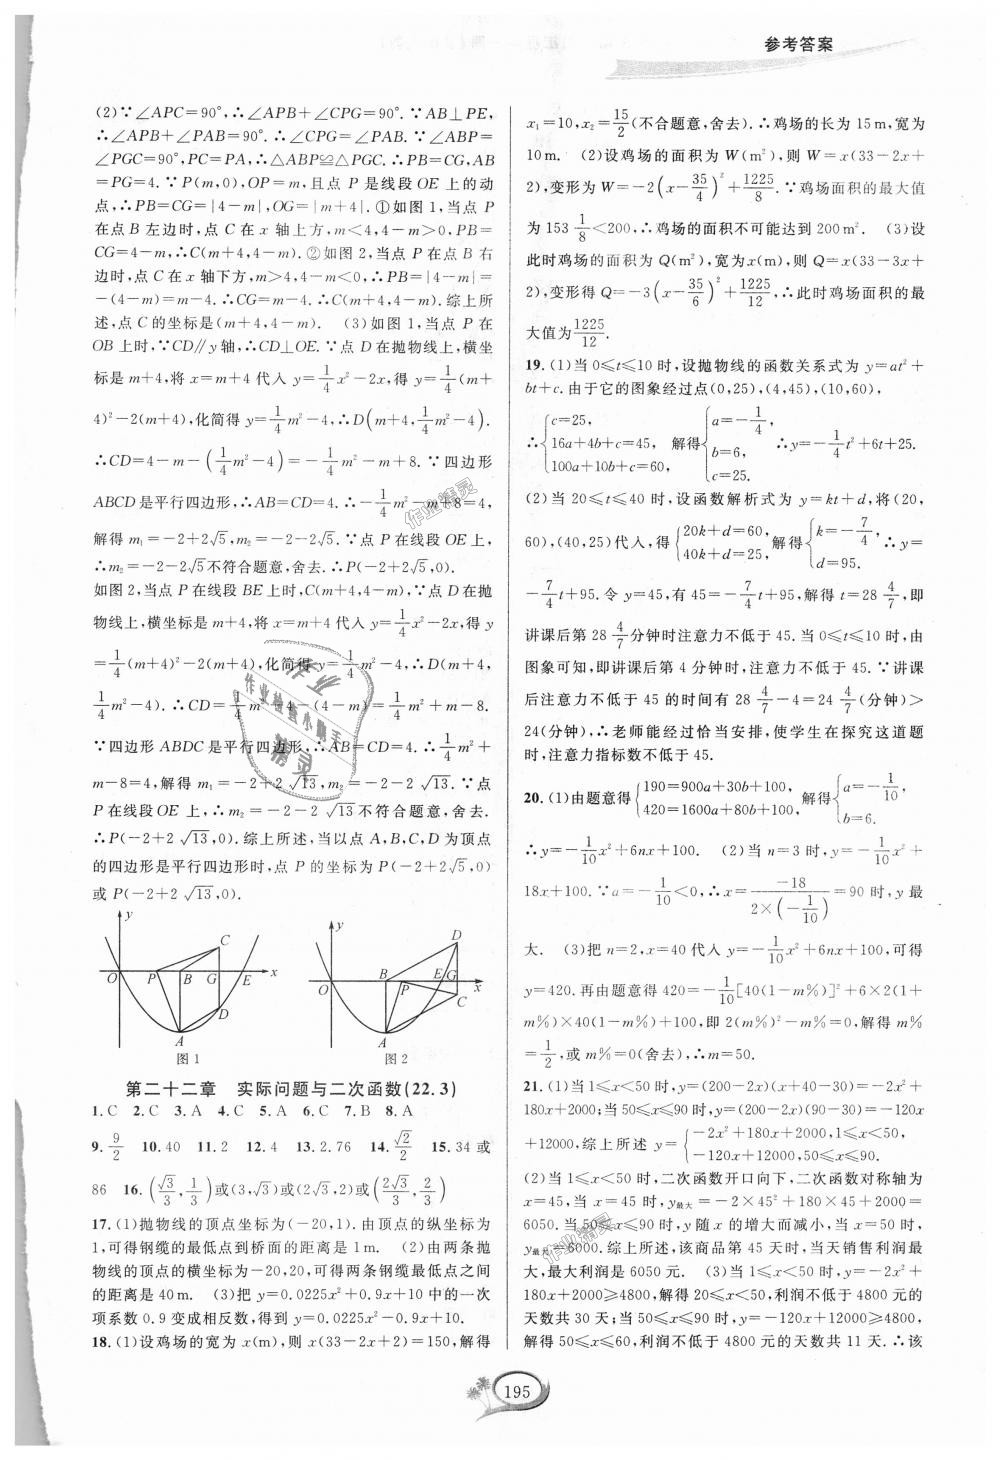 参考答案
(2)∵∠APC=90°,∴∠APB+∠CPG=90°.∵AB⊥PE,
∴∠APB+∠PAB=90°.∴∠CPG=∠PAB.∵∠ABP=
∠PGC=90°,PC=PA,∴△ABP≌△PGC.∴PB=CG,AB
=PG=4.∵P(m,0),OP=m,且点 P 是线段 OE 上的动
点,∴PB=CG=|4-m|,OG=|m+4|.①如图 1,当点 P
在点 B 左边时,点 C 在 x 轴上方,m<4,4-m>0,PB=
CG=4-m,∴C(m+4,4-m).②如图 2,当点 P 在点 B 右
边时,点 C 在 x 轴下方,m>4,4-m<0,∴PB=|4-m|=
-(4-m)=m-4.∴CG=m-4.∴C(m+4,4-m).综上所
述,点 C 的坐标是(m+4,4-m). (3)如图 1,当点 P 在
OB 上时,∵CD∥y 轴,∴CD⊥OE.∵点 D 在抛物线上,横坐
标是 m+4,将 x=m+4 代入 y=1/4x²-2x,得 y=1/4(m+
4)²-2(m+4),化简得 y=1/4m²-4,∴D(m+4,1/4m²-4).
∴CD=4-m-(1/4m²-4)=-1/4m²-m+8.∵四边形
ABCD 是平行四边形,∴AB=CD=4.∴-1/4m²-m+8=4,
解得 m₁=-2+2√5,m₂=-2-2√5.∵点 P 在线段 OE 上,
∴m₂=-2-2√5不符合题意,舍去.∴P(-2+2√5,0).
如图 2,当点 P 在线段 BE 上时,C(m+4,4-m),∵点 D 在抛
物线上,横坐标是 m+4,将 x=m+4 代入 y=1/4x²-2x,得 y
=1/4(m+4)²-2(m+4),化简得 y=1/4m²-4,∴D(m+4,
1/4m²-4).∴CD=1/4m²-4-(4-m)=1/4m²+m-8.
∵四边形 ABDC 是平行四边形,∴AB=CD=4.∴1/4m²+
m-8=4,解得 m₁=-2+2√13,m₂=-2-2√13.∵点
P 在线段 OE 上,∴m₂=-2-2√13不符合题意,舍去.
∴P(-2+2√13,0).综上所述,当以点 A,B,C,D 为顶点
的四边形是平行四边形时,点 P 的坐标为 P(-2+2√5,0)
或 P(-2+2√13,0).
y
C
O P B G E x
D
A
图 1
y
D
B E G
O P x
C
A
图 2
第二十二章 实际问题与二次函数(22.3)
1.C 2.C 3.A 4.C 5.A 6.C 7.B 8.A
9.9/2 10.40 11.2 12.4 13.2.76 14.√2/2 15.34 或
86 16.(√3/3,1/3)或(3,√3)或(2√3,2)或(2√3/3,2/3)
17.(1)抛物线的顶点坐标为(-20,1).由顶点的纵坐标为
1,可得钢缆的最低点到桥面的距离是 1m. (2)由两条抛
物线的顶点的横坐标为-20,20,可得两条钢缆最低点之间
的距离是 40 m. (3)把 y=0.0225x²+0.9x+10 中的一次
项系数 0.9 变成相反数,得到 y=0.0225x²-0.9x+10.
18.(1)设鸡场的宽为 x(m),则 x(33-2x+2)=150,解得
x₁=10,x₂=15/2(不合题意,舍去).∴鸡场的长为 15 m,宽为
10 m. (2)设鸡场的面积为 W(m²),则 W=x(33-2x+
2),变形为 W=-2(x-35/4)²+1225/8.∵鸡场面积的最大值
为 153 1/8<200,∴鸡场的面积不可能达到 200 m². (3)设
此时鸡场的面积为 Q(m²),宽为x(m),则 Q=x(33-3x+
2),变形得 Q=-3(x-35/6)²+1225/12,∴此时鸡场面积的最
大值为1225/12.
19.(1)当 0≤t≤10 时,设抛物线的函数关系式为 y=at²+
bt+c.由于它的图象经过点(0,25),(4,45),(10,60),
∴{c=25, 16a+4b+c=45, 100a+10b+c=60, 解得{a=-1/4, b=6, c=25. ∴y=-1/4t²+6t+25.
(2)当 20≤t≤40 时,设函数解析式为 y=kt+d,将(20,
60),(40,25)代入,得{20k+d=60, 40k+d=25, 解得{k=-7/4, d=95. ∴y=
-7/4t+95.令 y=45,有 45=-7/4t+95,解得 t=28 4/7,即
讲课后第 28 4/7分钟时注意力不低于 45.当 0≤t≤10 时,由
图象可知,即讲课后第 4 分钟时,注意力不低于 45.∵讲课
后注意力不低于 45 的时间有 28 4/7-4=24 4/7(分钟)>
24(分钟),∴老师能经过恰当安排,使学生在探究这道题
时,注意力指标数不低于 45.
20.(1)由题意得{190=900a+30b+100, 420=1600a+80b+100, 解得{a=-1/10, b=6.
∴y=-1/10x²+6nx+100. (2)当 n=3 时,y=-1/10x²+
18x+100.∵a=-1/10<0,∴x=-18/2×(-1/10)=90 时,y 最
大. (3)把 n=2,x=40 代入 y=-1/10x²+6nx+100,可得
y=420.再由题意得 420=-1/10[40(1-m%)]²+6×2(1+
m%)×40(1-m%)+100,即 2(m%)²-m%=0,解得 m%
=1/2,或 m%=0(舍去),∴m=50.
21.(1)当 1≤x<50 时,y=(200-2x)(x+40-30)=-2x²+
180x+2000;当 50≤x≤90 时,y=(200-2x)(90-30)=-120x
+12000,综上所述 y={-2x²+180x+2000,1≤x<50, -120x+12000,50≤x≤90.
(2)当 1≤x<50 时,二次函数开口向下,二次函数对称轴为
x=45,当 x=45 时,y最大=-2×45²+180×45+2000=
6050.当 50≤x≤90 时,y 随 x 的增大而减小,当 x=50 时,
y最大=6000.综上所述,该商品第 45 天时,当天销售利润最
大,最大利润是 6050 元. (3)当 1≤x<50 时,y=-2x²+
180x+2000≥4800,解得 20≤x<50,利润不低于 4800 元的
天数共 30 天;当 50≤x≤90 时,y=-120x+12000≥4800,
解得 50≤x≤60,利润不低于 4800 元的天数共 11 天.∴该
195